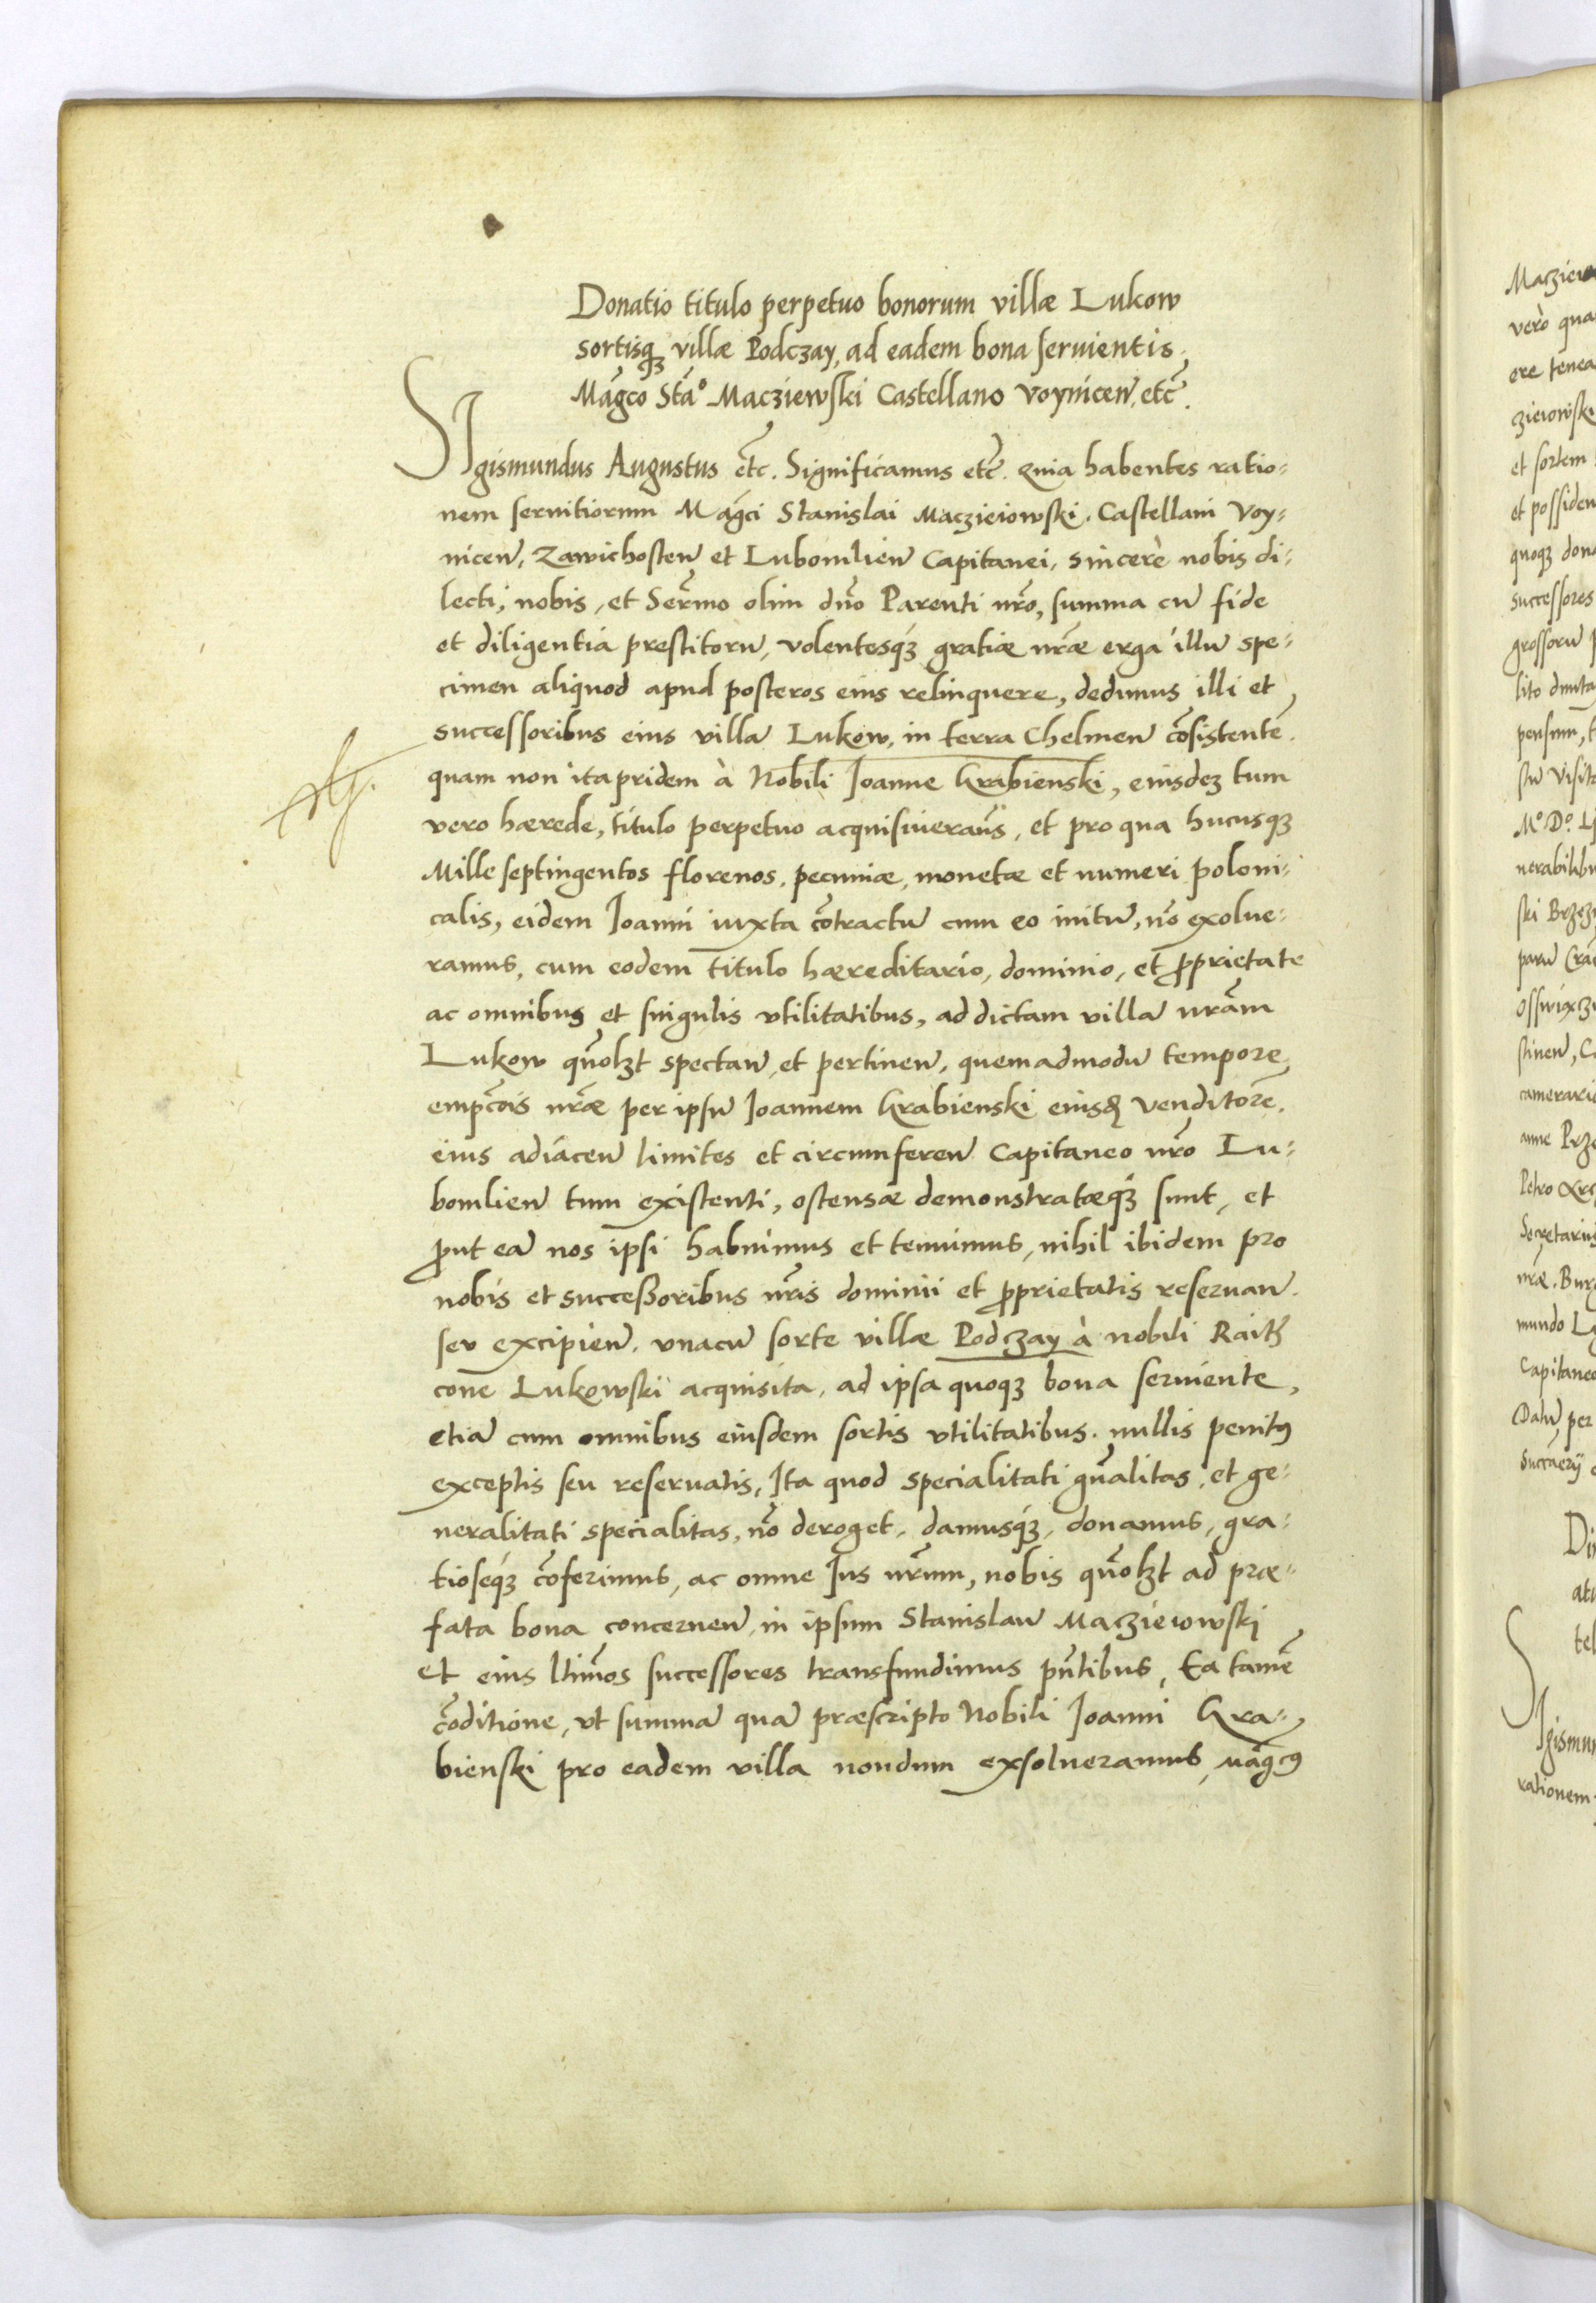 Donatio titulo perpetuo bonorum villæ Lukow
sortisqȝ villæ Podczay, ad eadem bona seruientis
Mãgco Stã° Macziewski Castellano Voynicen̄, etc̃.
SIgismundus Augustus etc̃. Significamus etc̃. Quia habentes ratio-
nem seruitiorum Mãgci Stanislai Maczieiowski. Castellani Voy-
nicen̄, Zawichosten̄ et Lubomlien̄ Capitanei, sincerè nobis di-
lecti, nobis, et Ser̃mo olim dño Parenti nr̃o, summa cū fide
et diligentia prestitorū, volentesqȝ gratiæ nr̃æ erga illū spe-
cimen aliquod apud posteros eius relinquere, dedimus illi et
successoribus eius villā Lukow, in terra Chelmen̄ cõsistentẽ.
quam non ita pridem à Nobili Joanne Krabienski, eiusdeȝ tum
vero hærede, titulo perpetuo acquisiueram̃s, et pro qua hucusqȝ
Mille septingentos florenos, pecuniæ, monetæ et numeri poloni-
calis, eidem Joanni iuxta cõtractū cum eo initū, nõ exolue-
ramus, cum eodem titulo hæreditario, dominio, et ꝓprietate
ac omnibus et singulis vtilitatibus, ad dictam villā nrãm
Lukow quõlȝt spectan̄, et pertinen̄, quemadmodū tempore
empc̃ois nr̃æ per ipsū Joannem Krabienski eiusdē venditorẽ,
eius adiacen̄ limites et circumferen̄ Capitaneo nr̃o Lu-
bomlien̄ tum existenti, ostensæ demonstratæqȝ sunt, et
ꝓut eā nos ipsi habuimus et tenuimus, nihil ibidem pro
nobis et successoribus nr̃is dominii et ꝓprietatis reseruan̄.
seu excipien̄. vnacū sorte villæ Podczay à nobili Raitȝ
cone Lukowski acquisita, ad ipsa quoqȝ bona seruiente,
etiā cum omnibus eiusdem sortis vtilitatibus. nullis penitꝰ
exceptis seu reseruatis, Ita quod specialitati gñalitas, et ge-
neralitati specialitas, nõ deroget, damusqȝ, donamus, gra-
tioseqȝ cõferimus, ac omne Jus nr̃um, nobis quõlȝt ad præ-
fata bona concernen̄, in ipsum Stanislaū Maczieiowski
et eius ltĩmos successores transfundimus pñtibus, Ea tamẽ
cõditione, vt summā quā præscripto Nobili Joanni Kra-
bienski pro eadem villa nondum exsolueramus, Mãgcꝰ